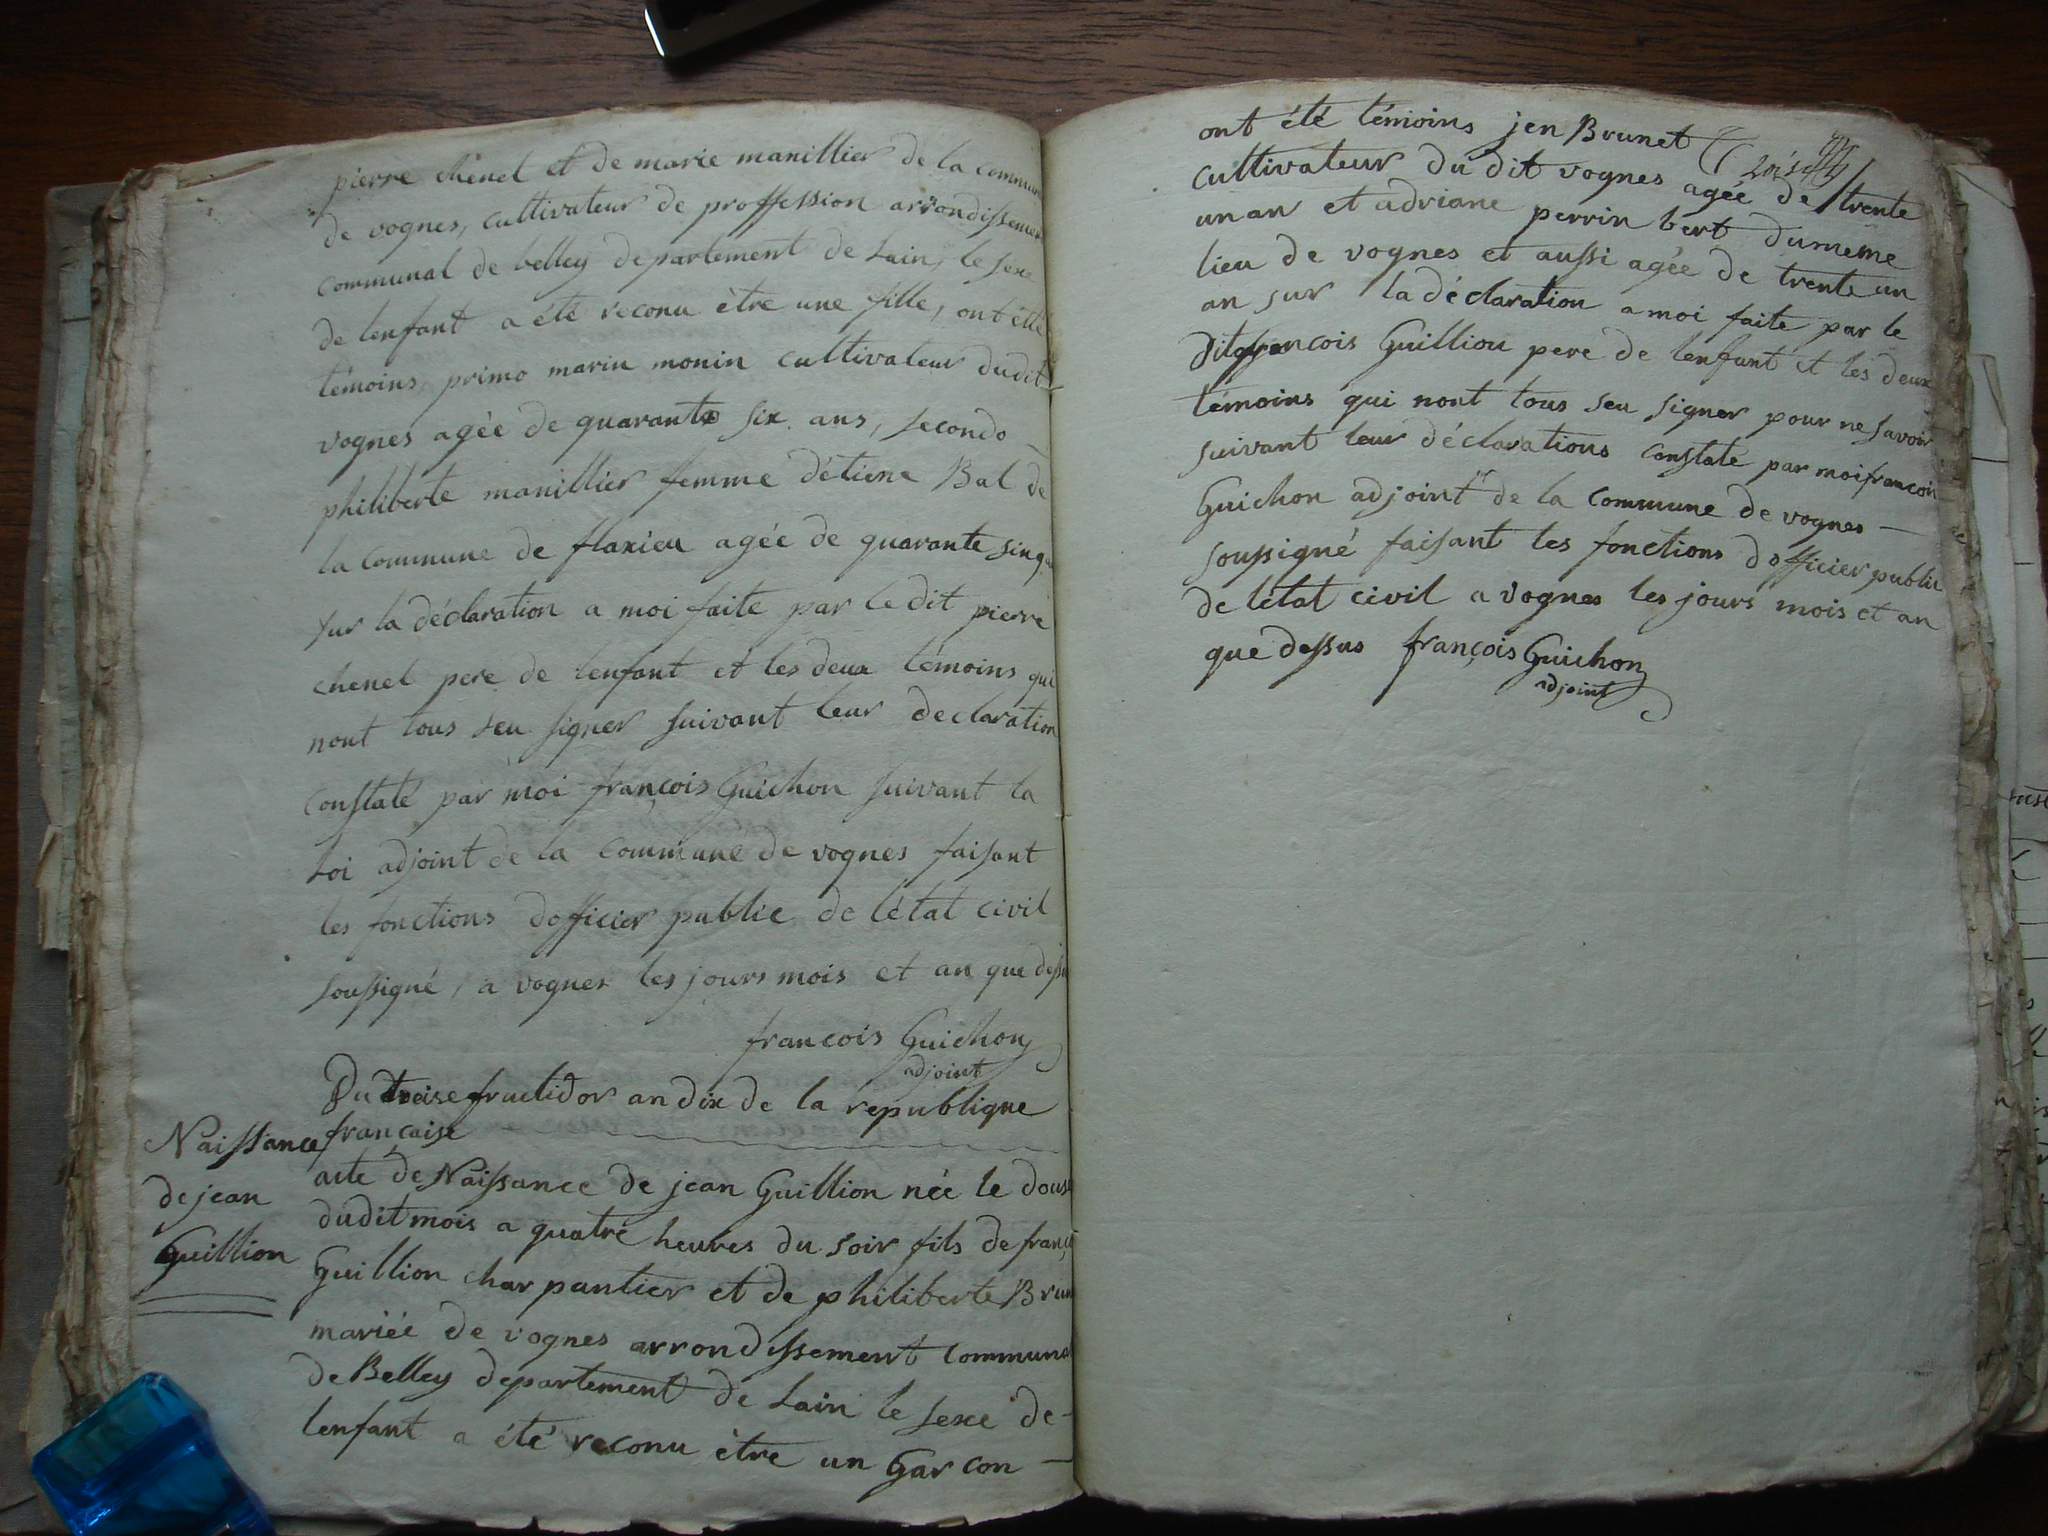 pierre chenel et de marie manillier de la commun
de vognes, cultivateur de proffession arrondissemen
communal de belley departement de Lain, le sexe
de lenfant a été reconu être une fille, ont été
témoins primo marin monin cultivateur dudit
vognes agée de quarante six ans, secondo
philiberte manillier femme détiene Bal de
la commune de flaxieu agée de quarante sinq
sur la déclaration a moi faite par le dit pierre
chenel pere de lenfant et les deux témoins qui
nont tous seu signer suivant leur declaration
constaté par moi françois Guichon suivant la
Loi adjoint de la commune de vognes faisant
les fonctions dofficier public de létat civil
soussigné, a vognes les jours mois et an que dessu
francois Guichon
adjoint
Du treise fructidor an dix de la république
française
Naissance
de jean
Guillion
acte de Naissance de jean Guillion née le douse
dudit mois a quatre heures du soir fils de franç
Guillion charpantier et de philiberte Brun
mariée de vognes arrondissement communa
de Belley departement de Lain le sexe de
lenfant a été reconu être un Garcon
ont été témoins jen Brunet
cultivateur du dit vognes agée de trente
un an et adriane perrin bert du meme
lieu de vognes et aussi agée de trente un
an sur la déclaration a moi faite par le
dit françois Guillion pere de lenfant et les deux
témoins qui nont tous seu signer pour ne savoir
suivant leur déclarations constaté par moi francois
Guichon adjoint de la commune de vognes
soussigné faisant les fonctions dofficier public
de létat civil a vognes les jours mois et an
que dessus françois Guichon
adjoint